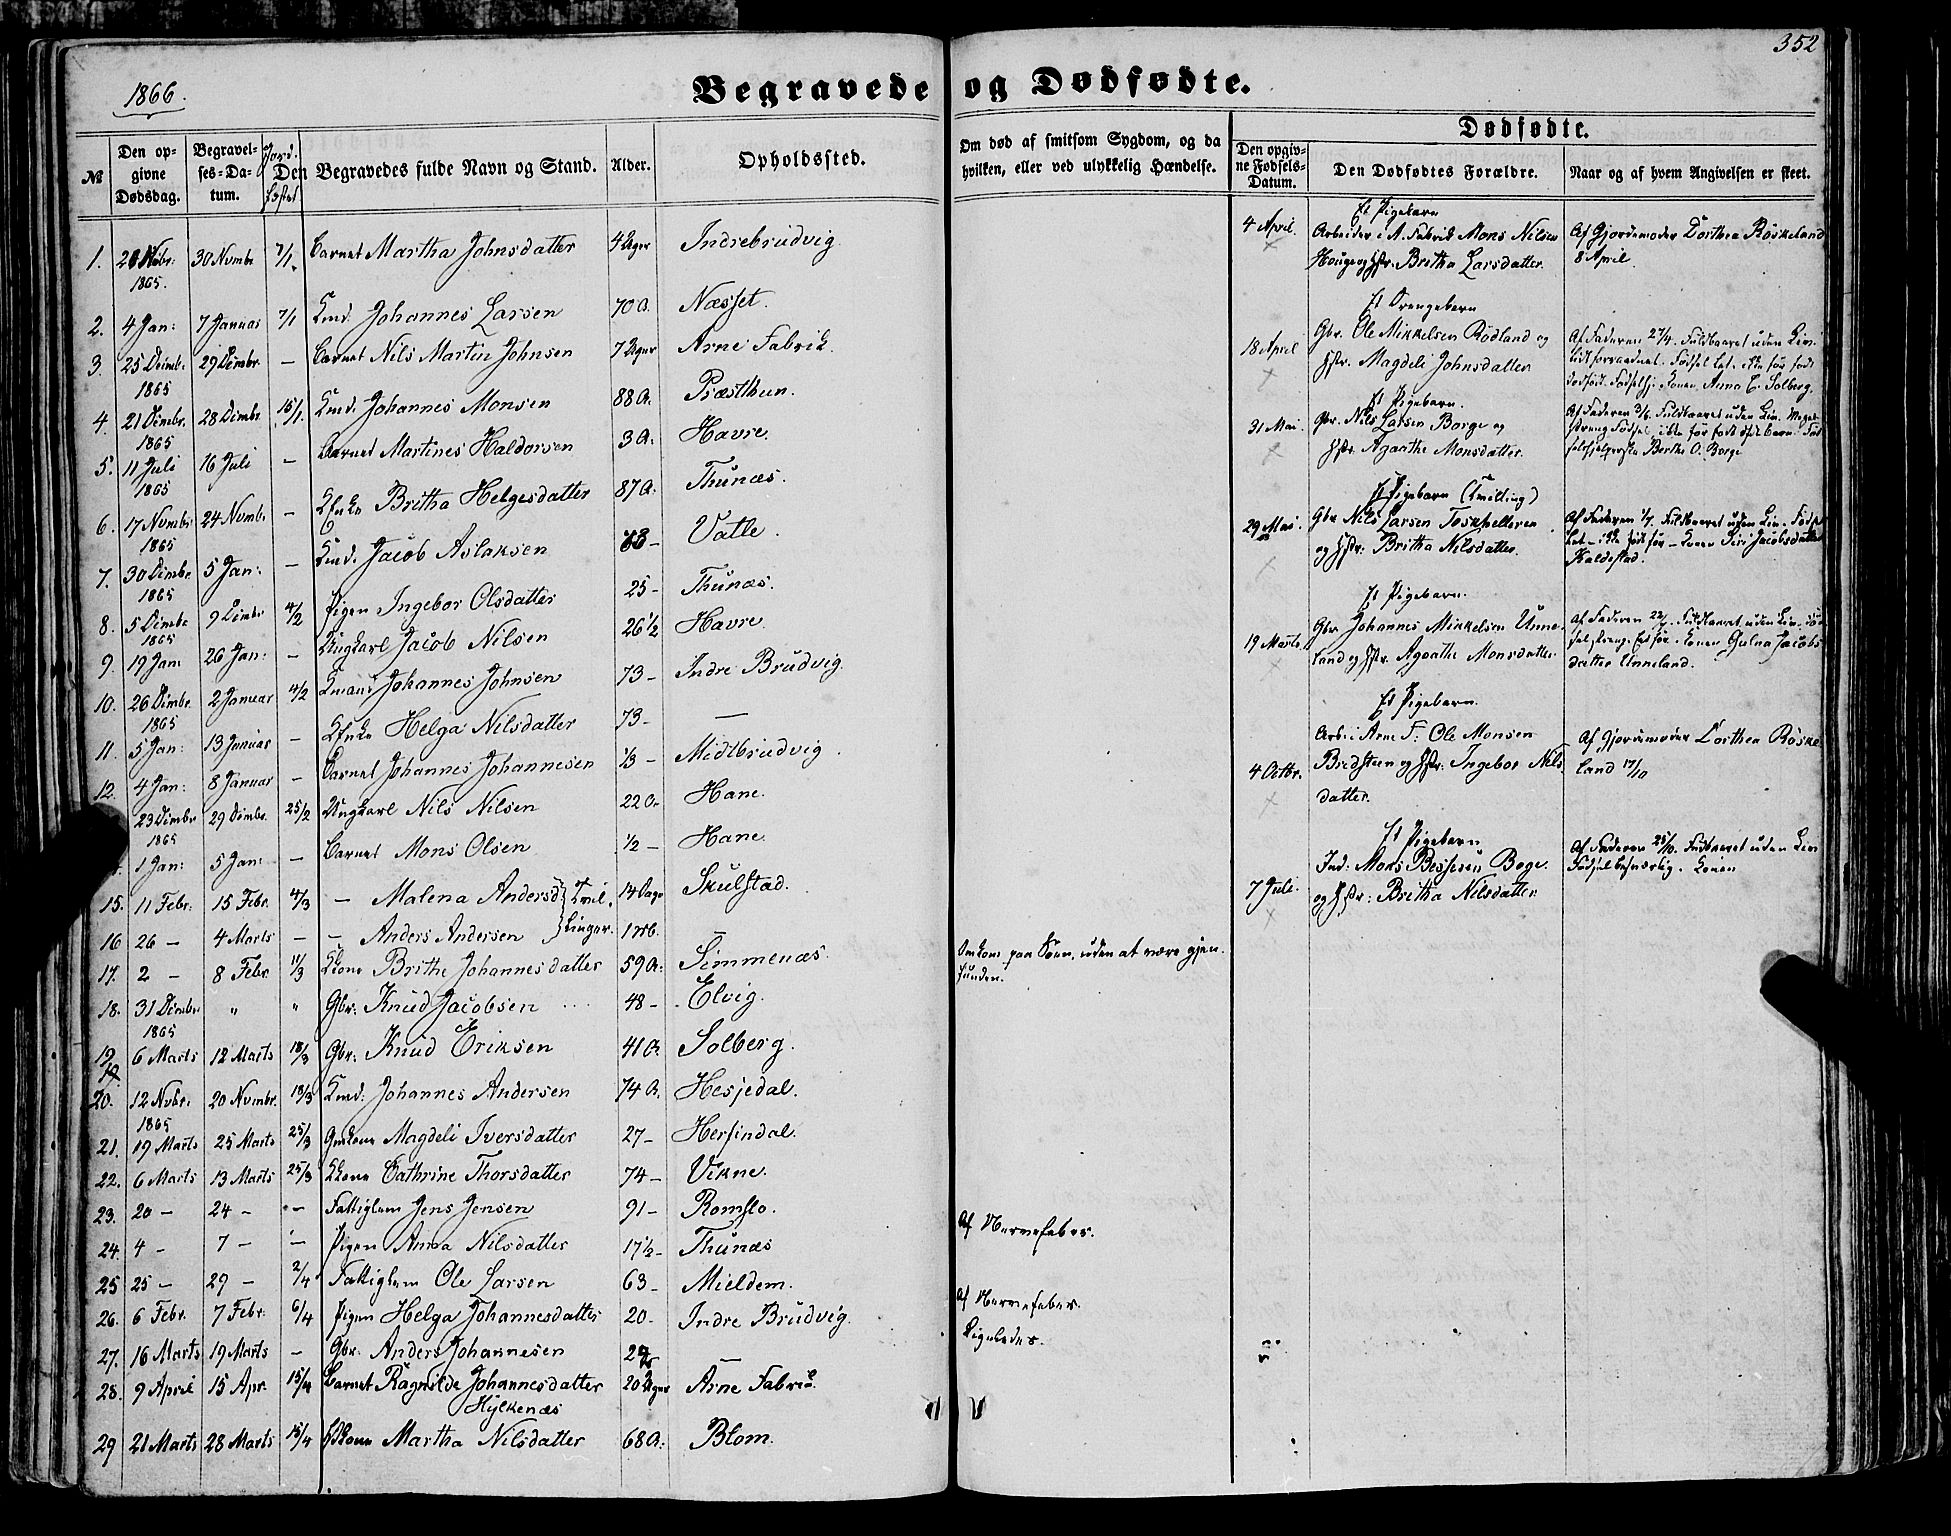 352
1866.
Begravede og Dødfødte.
№
Den opgivne Dødsdag.
Begravelses-Datum.
Jordfæstet
Den Begravedes fulde Navn og Stand.
Alder.
Opholdssted.
Om død af smitsom Sygdom, og da hvilken, eller ved ulykkelig Hændelse.
Dødfødte.
Den opgivne Fødsels-Datum.
Den Dødfødtes Forældre.
Naar og af hvem Angivelsen er skeet.
1. Novbr: 1865. 30 Novmbr 7/1 Barnet Martha Johnsdatter 4 Uger Indrebrudvig
2. 4 Jan: 7 Januar 7/1 Kmd. Johannes Larsen 70 A. Næsset.
3. 25 Decmbr 1865 29 Decmbr. — Barnet Nils Martin Johnsen 7 Uger Arne Fabrik
4. 21 Decmbr. 1865 28 Decmbr. 15/1 Kmd. Johannes Monsen 88 A. Præsthun.
5. 11 Juli 1865 16 Juli — Barnet Martines Haldorsen 3 A. Havre.
6. 17 Novmbr 1865 24 Novmbr — Enke Britha Helgesdatter 87 A. Thunæs.
7. 30 Decmbr 1865 5 Jan: — Kmd. Jacob Aslaksen — Vatle.
8. 5 Decmbr 1865 9 Decmbr 4/2 Pigen Ingebor Olsdatter 25 — Thunæs.
9. 19 Jan: 26 Jan: — Ungkarl Jacob Nilsen 26 1/2 Havre.
10. 26 Decmbr. 1865 2 Januar 4/2 Kmand Johannes Johnsen 73 — Indre Brudvig.
11. 5 Jan: 13 Januar — Enke Helga Nilsdatter 73 — —
12. 4 Jan: 8 Januar — Barnet Johannes Johannesen 1/3 — Midtbrudvig
23 Decmbr 1865 29 Decmbr. 25/2 Ungkarl Nils Nilsen 22 A. Hane.
1 Jan: 5 Jan: — Barnet Mons Olsen 1/2 — Hane.
15. 11 Febr: 15 Febr. 4/3 — Malena Andersd } Tvil- 14 Dage Skulstad.
16 26 — 4 Marts — — Anders Andersen } linger. —
17. 2 — 8 Febr. 11/3 Kone Brithe Johannesdatter 59 A. Simmenæs.
18. 31 Decmbr 1865 " " Gbr: Knud Jacobsen 48 — Elvig. Omkom paa Søen, uden at være gjenfunden.
19. 6 Marts 12 Marts 18/3 Gbr: Knud Eriksen 41 A. Solberg.
20. 12 Nvbr: 1865 20 Novmbr. 18/3 Kmd: Johannes Andersen 74 A. Hesjedal.
21. 19 Marts 25 Marts 25/3 Gmkone Magdeli Iversdatter 27 — Herfindal.
22. 6 Marts 13 Marts 25/3 Kone Cathrine Thorsdatter 74 — Vikne.
23. 20 — 24 — — Fattiglem Jens Jensen 91 — Romslo.
24. 4 — 7 — — Pigen Anna Nilsdatter 17 1/2 — Thunæs Af Nervefeber.
25 25 — 29 — 2/4 Fattiglem Ole Larsen 63 — Mieldem.
26. 6 Febr. 7 Febr. 6/4 Pigen Helga Johannesdatter 20 — Indre Brudvig. Af Nervefeber.
27. 16 Marts 19 Marts — Gbr. Anders Johannesen — Ligeledes.
28. 9 April 15 Apr. 15/4 Barnet Ragnilde Johannesdatter Hylkenæs 20 Uger Arne Fabrik.
29 21 Marts 28 Marts 15/4 Kone Martha Nilsdatter 68 A. Blom.
4 April. Et Pigebarn
Arbeider i A. Fabrik Mons Nilsen
Houge og Hstr. Britha Larsdatter.
Af Gjordemoder Dorthea Røskeland 8 April.
18 April Et Drengebarn
Gbr. Ole Mikkelsen Rødland og
Hstr. Magdeli Johnsdatter
Af Faderen 27/4. Fuldbaaret uden Liv. Konen Anna E. Solberg.
31 Mai. Et Pigebarn.
Gbr. Nils Larsen Borge og
Hstr. Agaathe Monsdatter.
Af Faderen 3/6. Fuldbaaret uden Liv. Meget streng Fødsel, ikke før født Berthe O. Borge
29 Mai. Et Pigebarn (Tvilling)
Gbr Nils Larsen Toskhelleren
og Hstr. Britha Nilsdatter.
Af Faderen 1/7. Fuldbaaret uden Liv. Konen Siri Jacobsdatter Kaldestad.
19 Marts Et Pigebarn.
Gbr Johannes Mikkelsen Unneland og Hstr. Agaathe Monsdatter
Af Faderen 22/7. Fuldbaaret uden Liv. Konen Gulna Jacobsdatter Unneland.
4 Octbr. Et Pigebarn.
Arb: i Arne F. Ole Monsen
Bredsteen og Hstr. Ingebor Nilsdatter.
Af Gjordemoder Dorthea Røskeland 17/10
7 Juli. Et Pigebarn
Ind. Mons Bessesen Boge.
og Hstr: Britha Nilsdatter
Af Faderen 25/10. Fuldbaaret uden Liv Fødsel besværlig. Konen